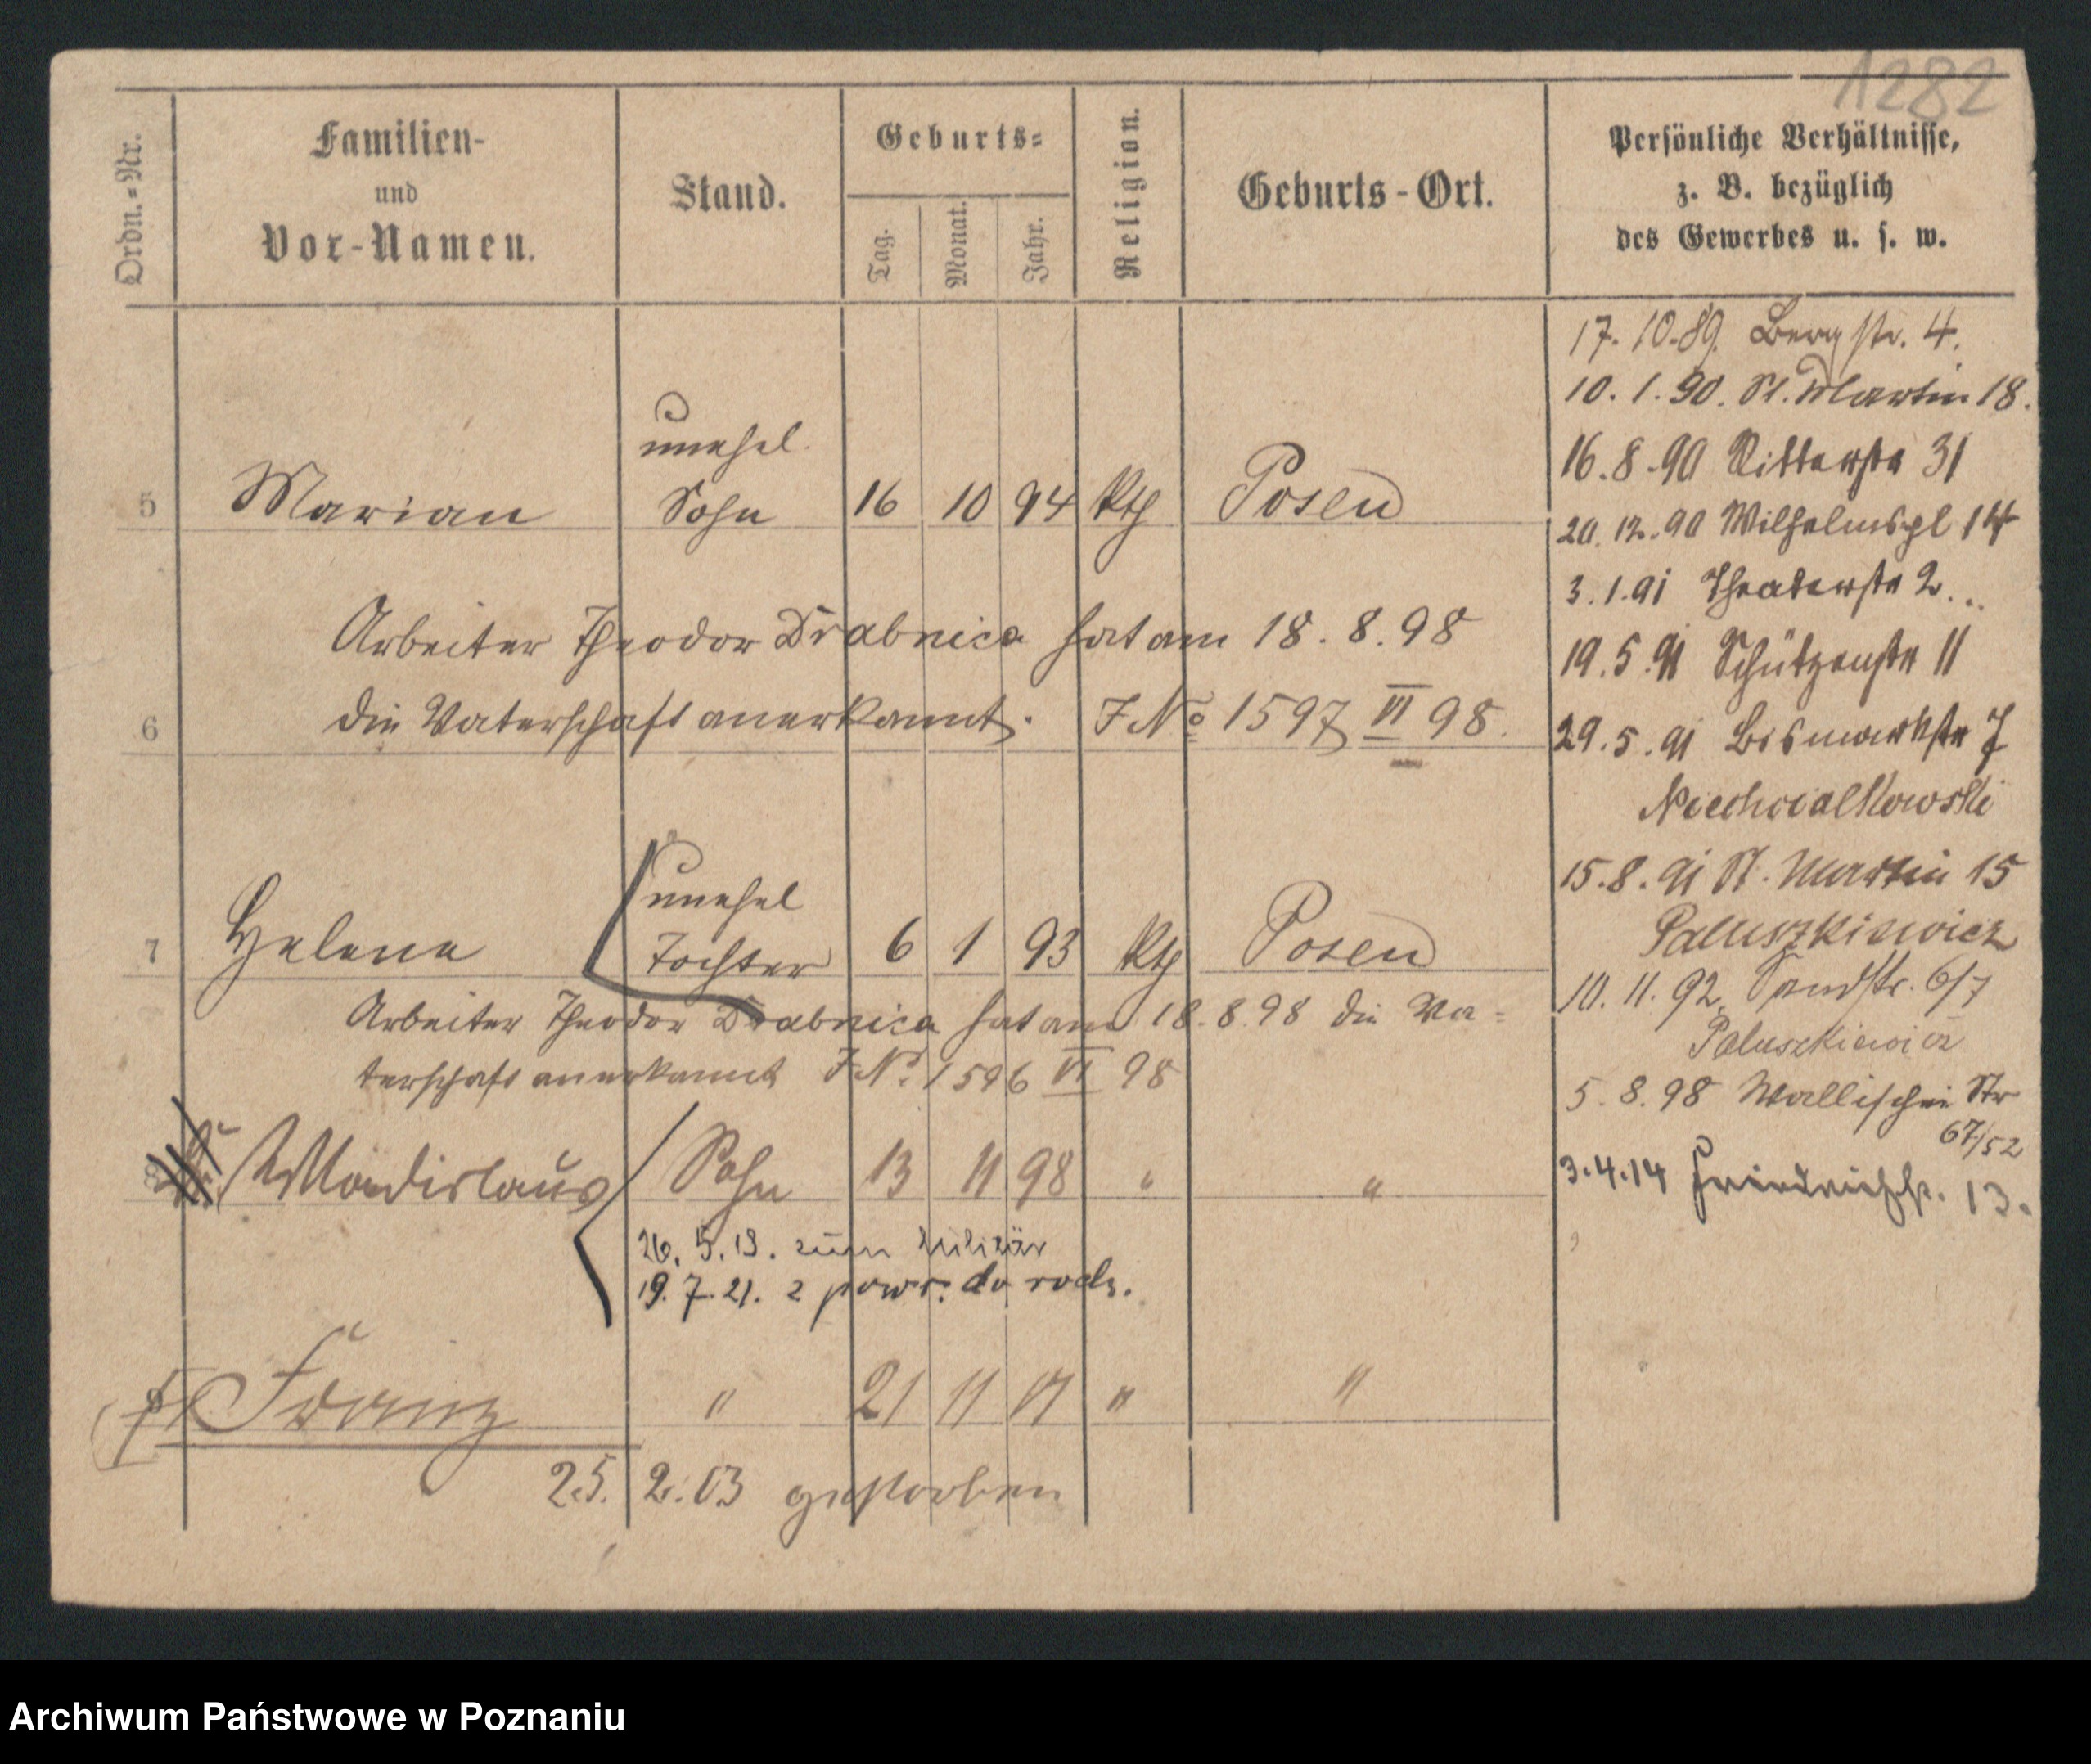 1282
Ordn.-Nr.
Familien-
und
Vor-Namen.
Stand.
Geburts-
Tag.
Monat.
Jahr.
Religion.
Geburts-Ort.
Persönliche Verhältnisse,
z. B. bezüglich
des Gewerbes u. s. w.
5 Marian unehel. Sohn 16 10 94 kth Posen
Arbeiter Theodor Drabnica hat am 18. 8. 98
6 die Vaterschaft anerkannt. J No 1597 VI 98.
7 Helene unehel Tochter 6 1 93 kth Posen
Arbeiter Theodor Drabnica hat am 18. 8. 98 die Va=
terschaft anerkannt J No. 1596 VI 98
8 Wladislaus Sohn 13 11 98 " "
26. 5. 19. zum Militär
19. 7. 21. z powr. do rodz.
9 Franz " 21 11 01 " "
25. 2. 03 gestorben
17. 10. 89. Bergstr. 4.
10. 1. 90. St. Martin 18.
16. 8. 90 Ritterstr 31
20. 12. 90 Wilhelmspl 14
3. 1. 91 Theaterstr 2.
19. 5. 91 Schützenstr 11
29. 5. 91 Bismarkstr 7
Niechcialkowski
15. 8. 91 St. Martin 15
Paluszkiewicz
10. 11. 92. Sandstr. 6/7
Paluszkiewicz
5. 8. 98 Wallischei Str
67/52
3. 4. 14 Friedrichstr. 13.
Archiwum Państwowe w Poznaniu